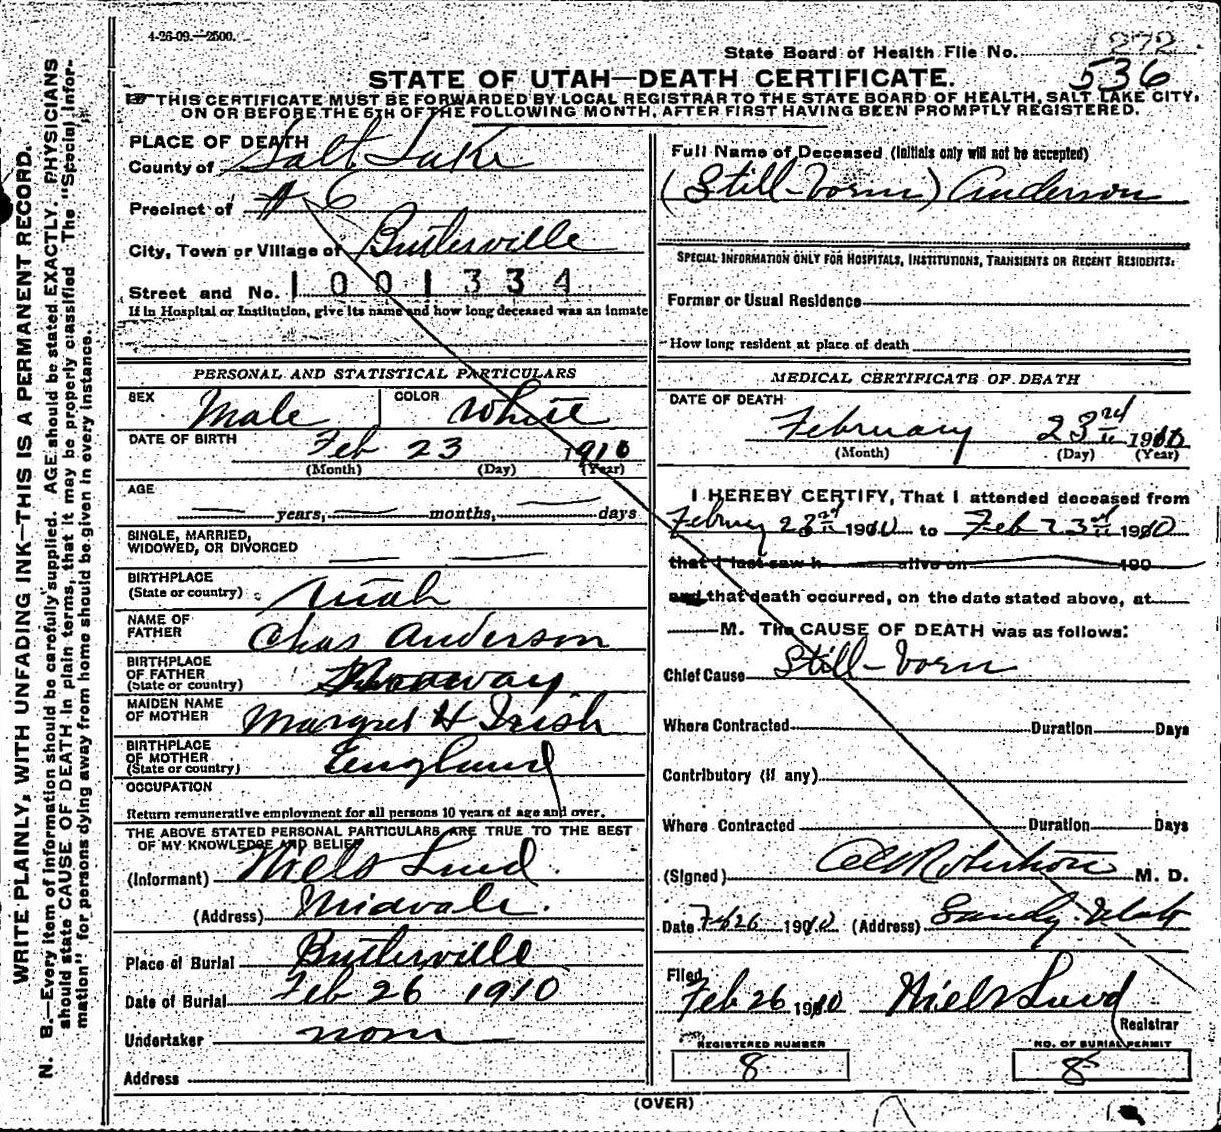 4-26-09.—2500.
State Board of Health File No. 272
536
STATE OF UTAH—DEATH CERTIFICATE.
THIS CERTIFICATE MUST BE FORWARDED BY LOCAL REGISTRAR TO THE STATE BOARD OF HEALTH, SALT LAKE CITY,
ON OR BEFORE THE 5TH OF THE FOLLOWING MONTH, AFTER FIRST HAVING BEEN PROMPTLY REGISTERED.
WRITE PLAINLY, WITH UNFADING INK—THIS IS A PERMANENT RECORD.
N. B.—Every item of information should be carefully supplied. AGE should be stated EXACTLY. PHYSICIANS
should state CAUSE OF DEATH in plain terms, that it may be properly classified. The "Special Infor-
mation" for persons dying away from home should be given in every instance.
PLACE OF DEATH
County of Salt Lake
Precinct of # 6
City, Town or Village of Butlerville
Street and No. 1001334
If in Hospital or Institution, give its name and how long deceased was an inmate
PERSONAL AND STATISTICAL PARTICULARS
SEX Male COLOR White
DATE OF BIRTH Feb 23 1910
(Month) (Day) (Year)
AGE
years, months, days
SINGLE, MARRIED,
WIDOWED, OR DIVORCED
BIRTHPLACE
(State or country) Utah
NAME OF
FATHER Chas Anderson
BIRTHPLACE
OF FATHER
(State or country)
MAIDEN NAME
OF MOTHER Margret H Irish
BIRTHPLACE
OF MOTHER
(State or country) England
OCCUPATION
Return remunerative employment for all persons 10 years of age and over.
THE ABOVE STATED PERSONAL PARTICULARS ARE TRUE TO THE BEST
OF MY KNOWLEDGE AND BELIEF
(Informant) Niels Lund
(Address) Midvale.
Place of Burial Butlerville
Date of Burial Feb 26 1910
Undertaker none
Address
Full Name of Deceased (Initials only will not be accepted)
(Still-born) Anderson
SPECIAL INFORMATION ONLY FOR HOSPITALS, INSTITUTIONS, TRANSIENTS OR RECENT RESIDENTS:
Former or Usual Residence
How long resident at place of death
MEDICAL CERTIFICATE OF DEATH
DATE OF DEATH
February 23rd 1910
(Month) (Day) (Year)
I HEREBY CERTIFY, That I attended deceased from
Februay 23rd 1910 to Feb 23rd 1910
that I last saw h alive on 190
and that death occurred, on the date stated above, at
M. The CAUSE OF DEATH was as follows:
Chief Cause Still-born
Where Contracted Duration Days
Contributory (if any)
Where Contracted Duration Days
(Signed) Robertson M. D.
Date Feb 26 1910 (Address) Sandy. Utah
Filed
Feb 26 1910 Niels Lund
Registrar
REGISTERED NUMBER NO. OF BURIAL PERMIT
8 8
(OVER)